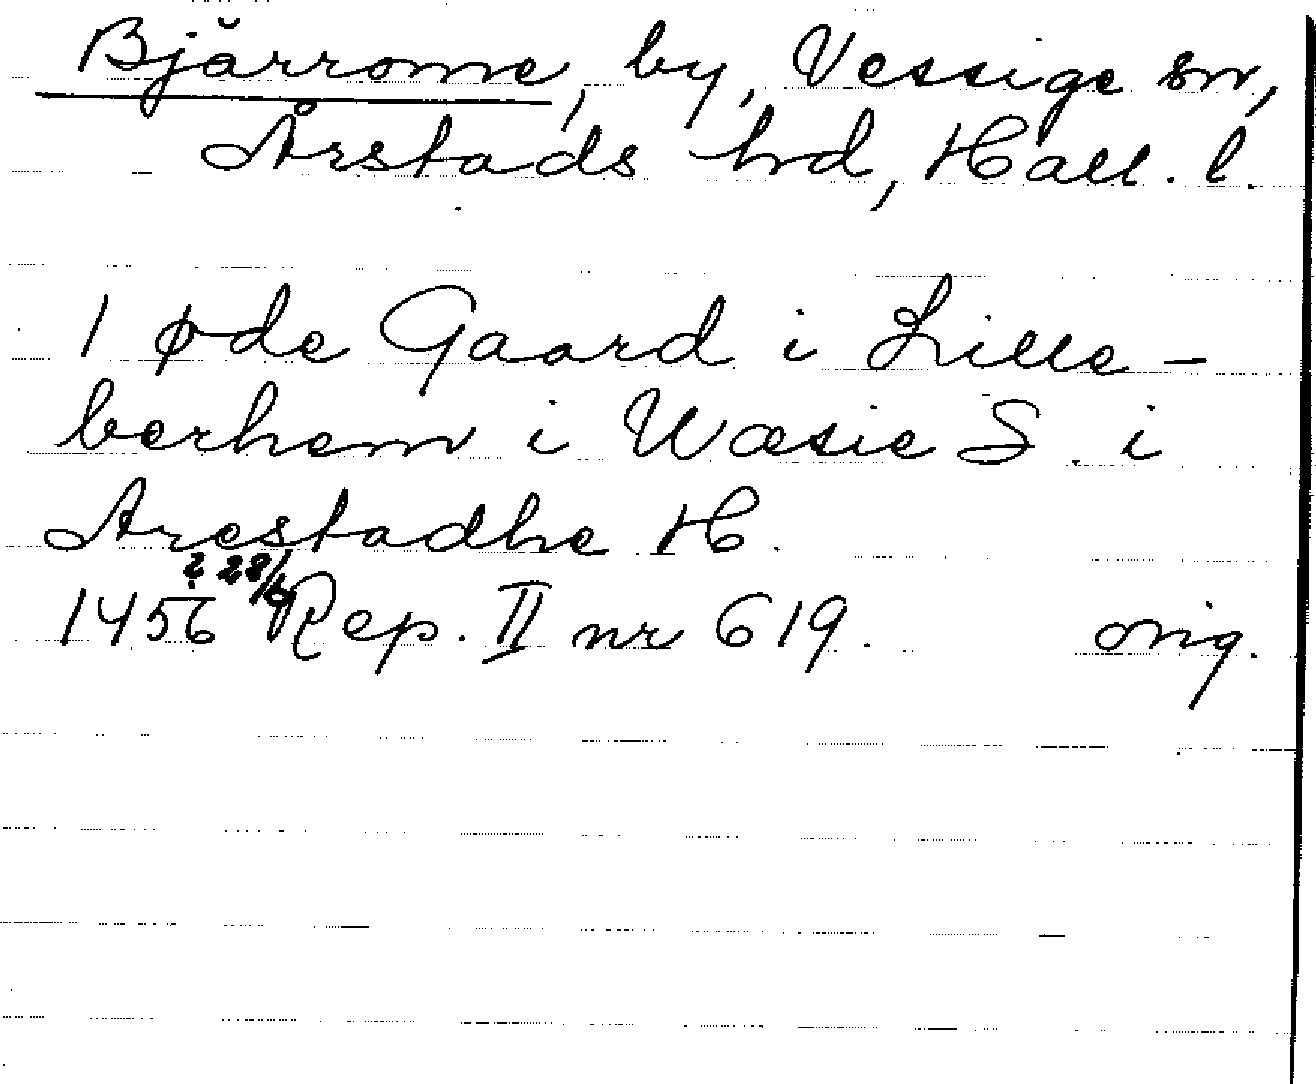 Bjärrome, by, Vessige sn,
Årstads hrd, Hall. l.
1 øde Gaard i Lille-
berhem i Wæsie S. i
Arestadhe H.
? 28/6
1456 Rep. II nr 619. orig.